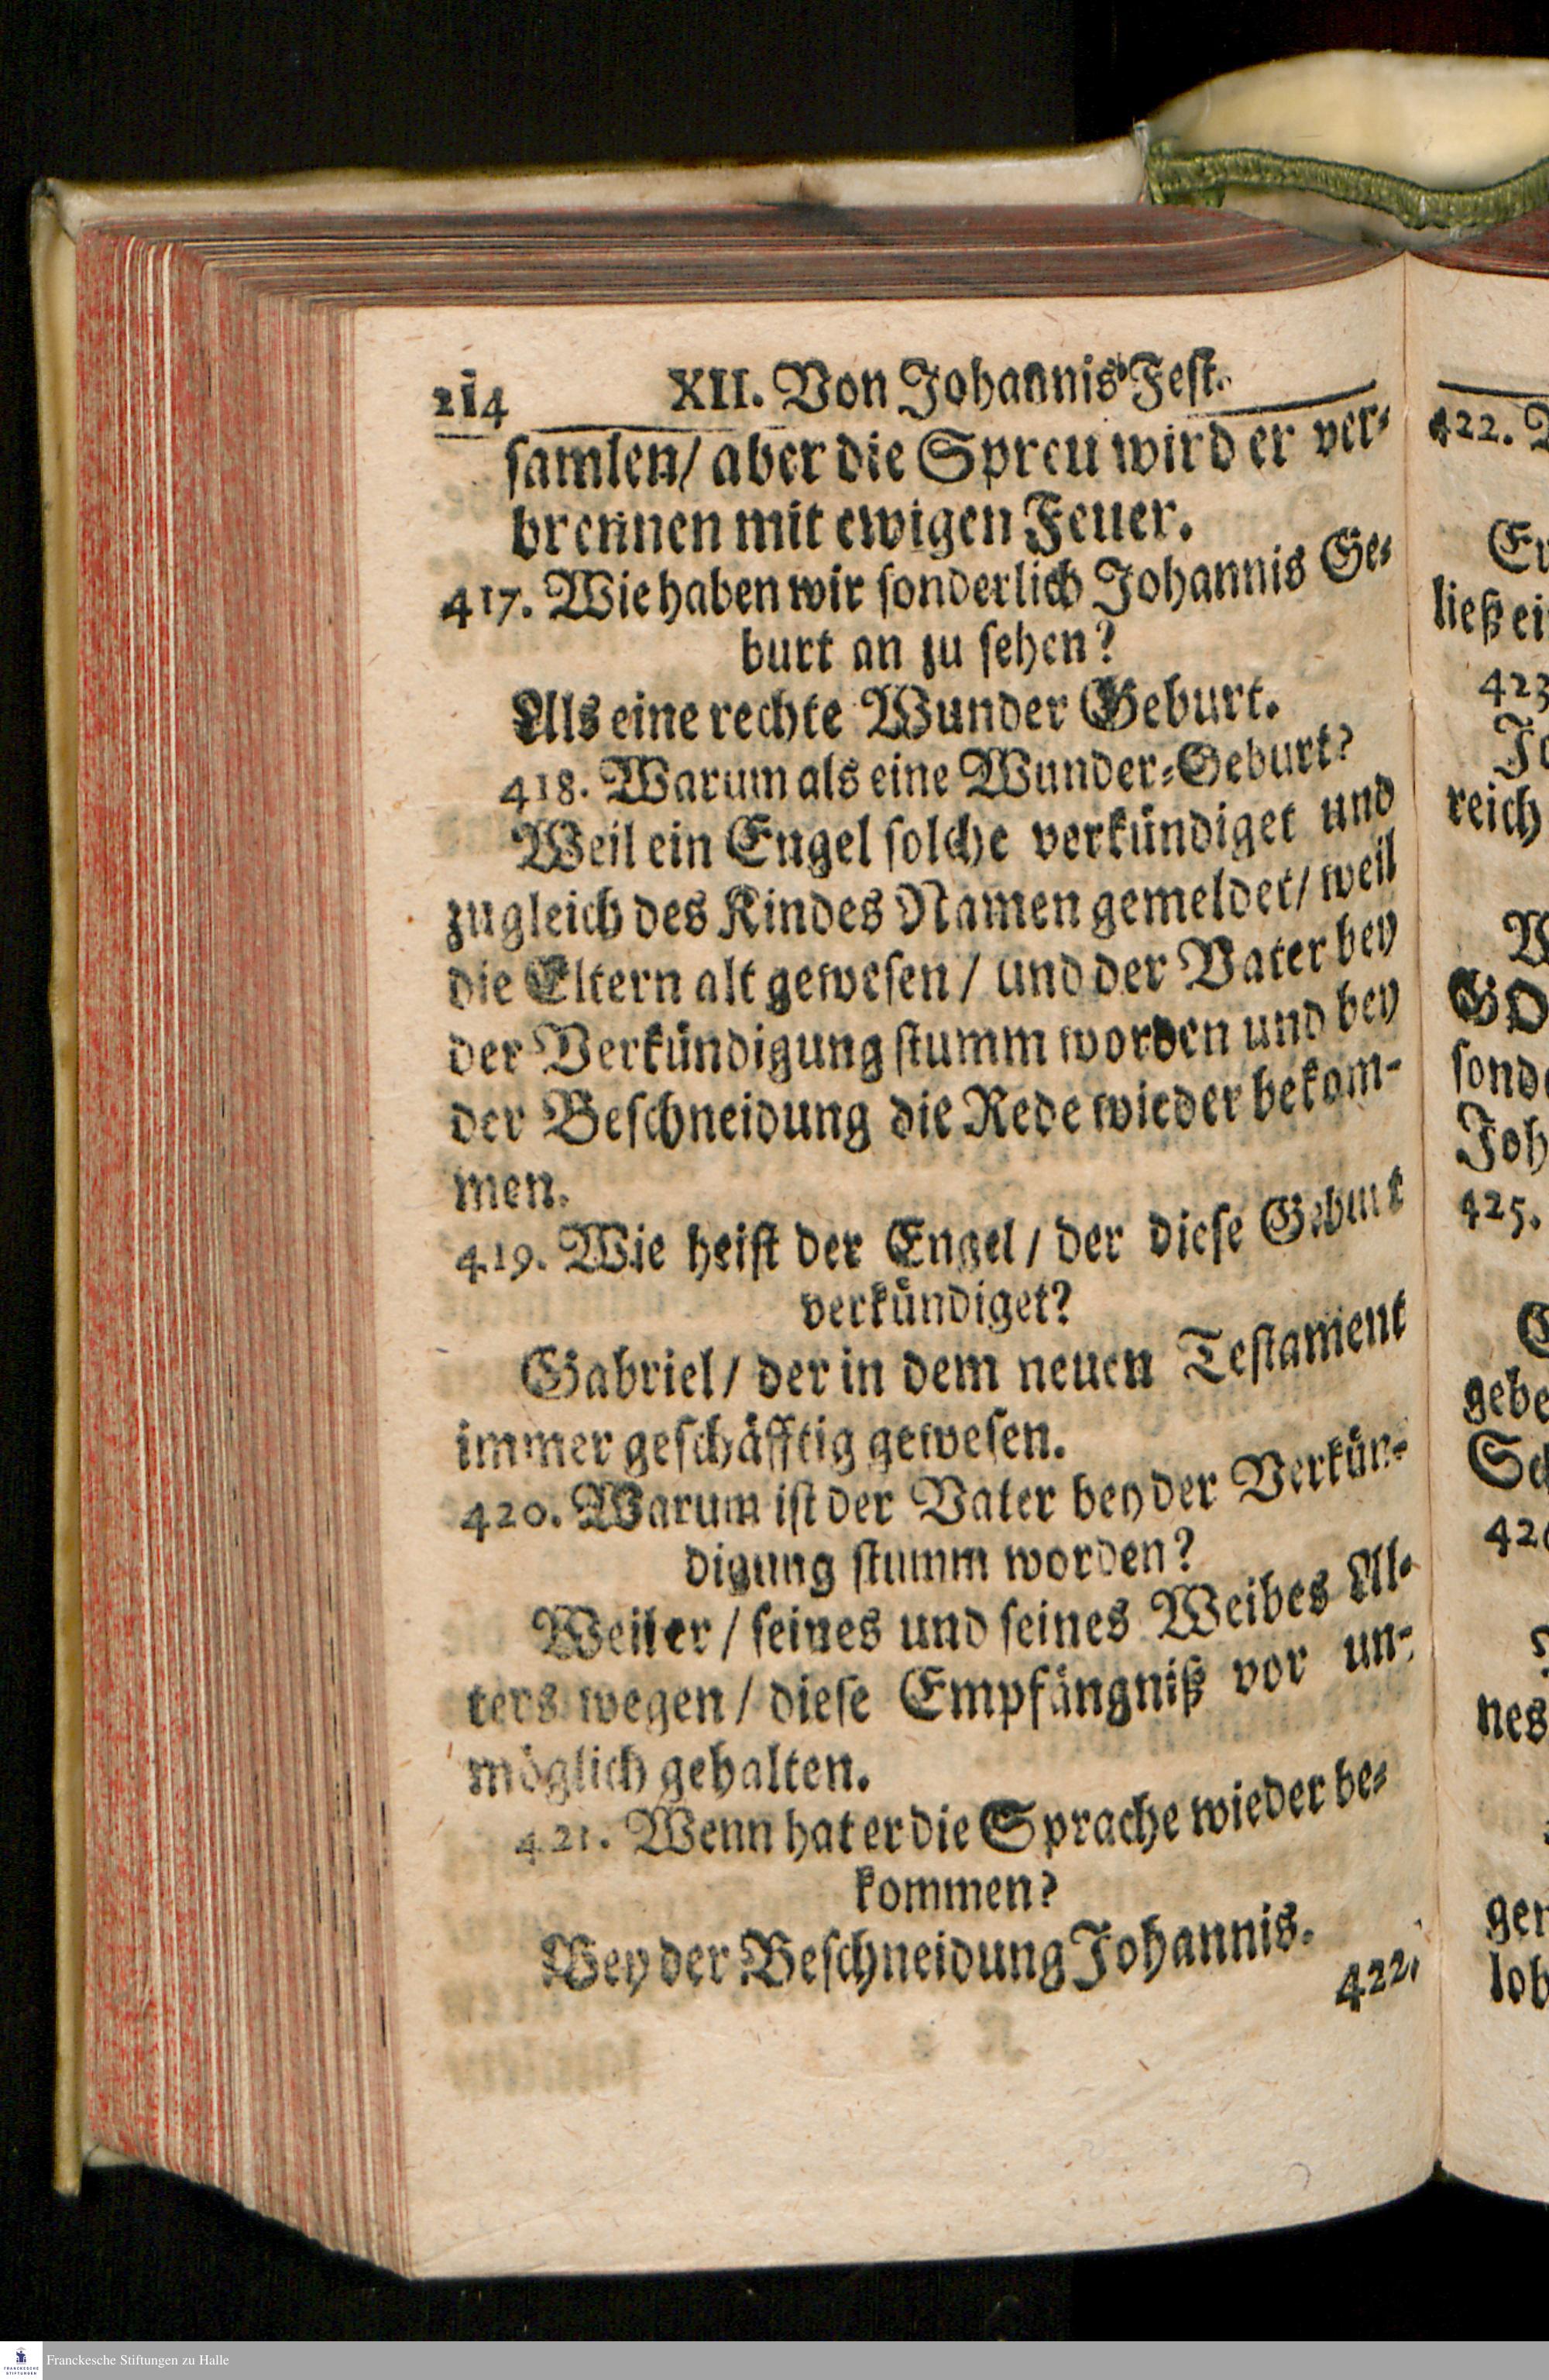 214 XII. Von Johannis Fest.
samlen/ aber die Spreu wird er ver-
brennen mit ewigen Feuer.
417. Wie haben wir sonderlich Johannis Ge-
burt an zu sehen?
Als eine rechte Wunder Geburt.
418. Warum als eine Wunder-Geburt?
Weil ein Engel solche verkündiget und
zugleich des Kindes Namen gemeldet/ weil
die Eltern alt gewesen/ und der Vater bey
der Verkündigung stumm worden und bey
der Beschneidung die Rede wieder bekom-
men.
419. Wie heist der Engel/ der diese Geburt
verkündiget?
Gabriel/ der in dem neuen Testament
immer geschäfftig gewesen.
420. Warum ist der Vater bey der Verkün-
digung stumm worden?
Weil er/ seines und seines Weibes Al-
ters wegen/ diese Empfängniß vor un-
möglich gehalten.
421. Wenn hat er die Sprache wieder be-
kommen?
Bey der Beschneidung Johannis.
422.
422.
ließ ei
423
reich
sond
Joh
425.
gebe
nes
ger
lob
Franckesche Stiftungen zu Halle